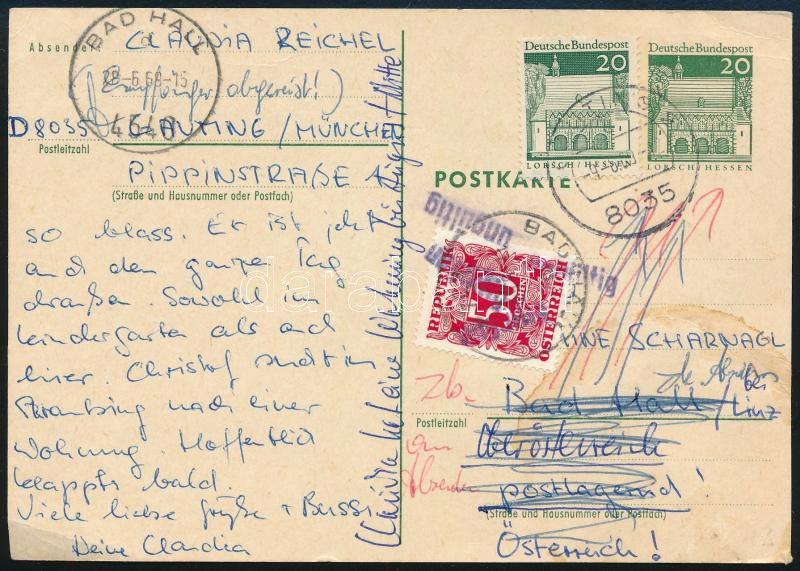 Absender
CLAUDIA REICHEL
(Empfänger abgereist!)
D 8035 GAUTING / MÜNCHEN
Postleitzahl
PIPPINSTRAßE
(Straße und Hausnummer oder Postfach)
BAD HALL
28-6.68-15
4540
so blass. Er ist jetzt
auch den ganzen Tag
draußen. Sowohl im
Kindergarten als auch
hier. Christof sucht in
Straubing nach einer
Wohnung. Hoffentlich
klappts bald.
Viele liebe Grüße + Bussi
Deine Claudia
Deutsche Bundespost
20
LORSCH/HESSEN
Deutsche Bundespost
20
LORSCH/HESSEN
8035
POSTKARTE
ungültig
BAD
REPUBLIK
50
GROSCHEN
ÖSTERREICH
SCHARNAGL
zb.
Bad Hall / bei Linz
Postleitzahl
Oberösterreich
an
postlagernd!
(Straße und Hausnummer oder Postfach)
Österreich!